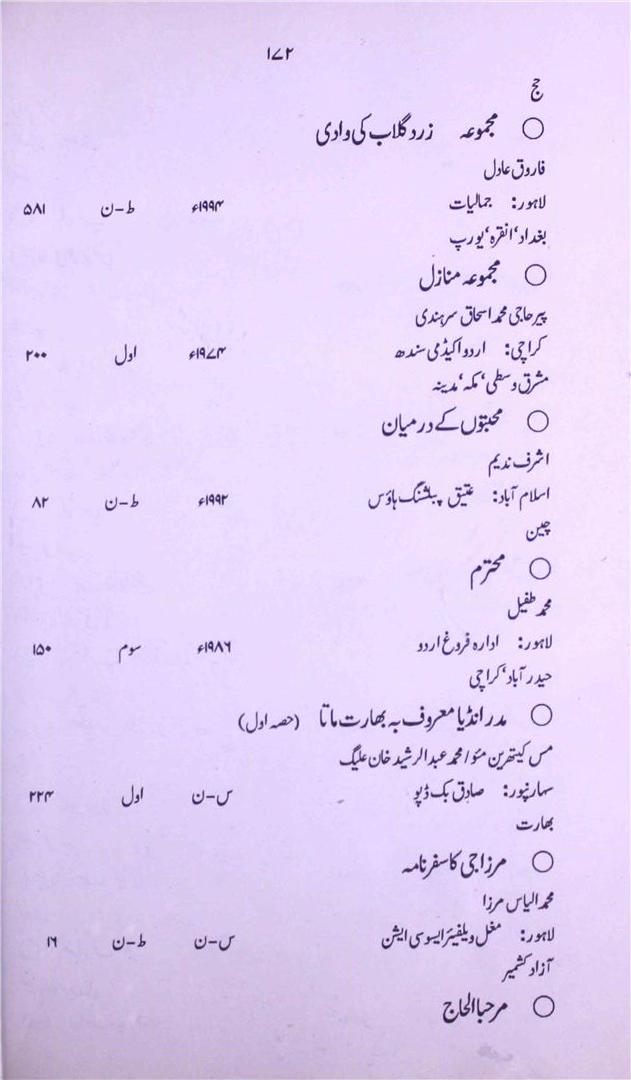 ۱۷۲
حج
○ مجموعہ زرد گلاب کی وادی
فاروق عادل
لاہور: جمالیات ۱۹۹۴ء ط-ن ۵۸۱
بغداد، انقرہ، یورپ
○ مجموعہ منازل
پیر حاجی محمد اسحاق سرہندی
کراچی: اردو اکیڈمی سندھ ۱۹۷۴ء اول ۲۰۰
مشرق وسطی، مکہ، مدینہ
○ محبتوں کے درمیان
اشرف ندیم
اسلام آباد: عتیق پبلشنگ ہاؤس ۱۹۹۲ء ط-ن ۸۲
چین
○ محترم
محمد طفیل
لاہور: ادارہ فروغ اردو ۱۹۸۶ء سوم ۱۵۰
حیدر آباد، کراچی
○ مدر انڈیا معروف بہ بھارت ماتا (حصہ اول)
مس کیتھرین مئو / محمد عبدالرشید خان علیگ
سہارنپور: صادق بک ڈپو س-ن اول ۲۲۴
بھارت
○ مرزا جی کا سفرنامہ
محمد الیاس مرزا
لاہور: مغل ویلفیئر ایسوسی ایشن س-ن ط-ن ۱۶
آزاد کشمیر
○ مرحبا الحاج